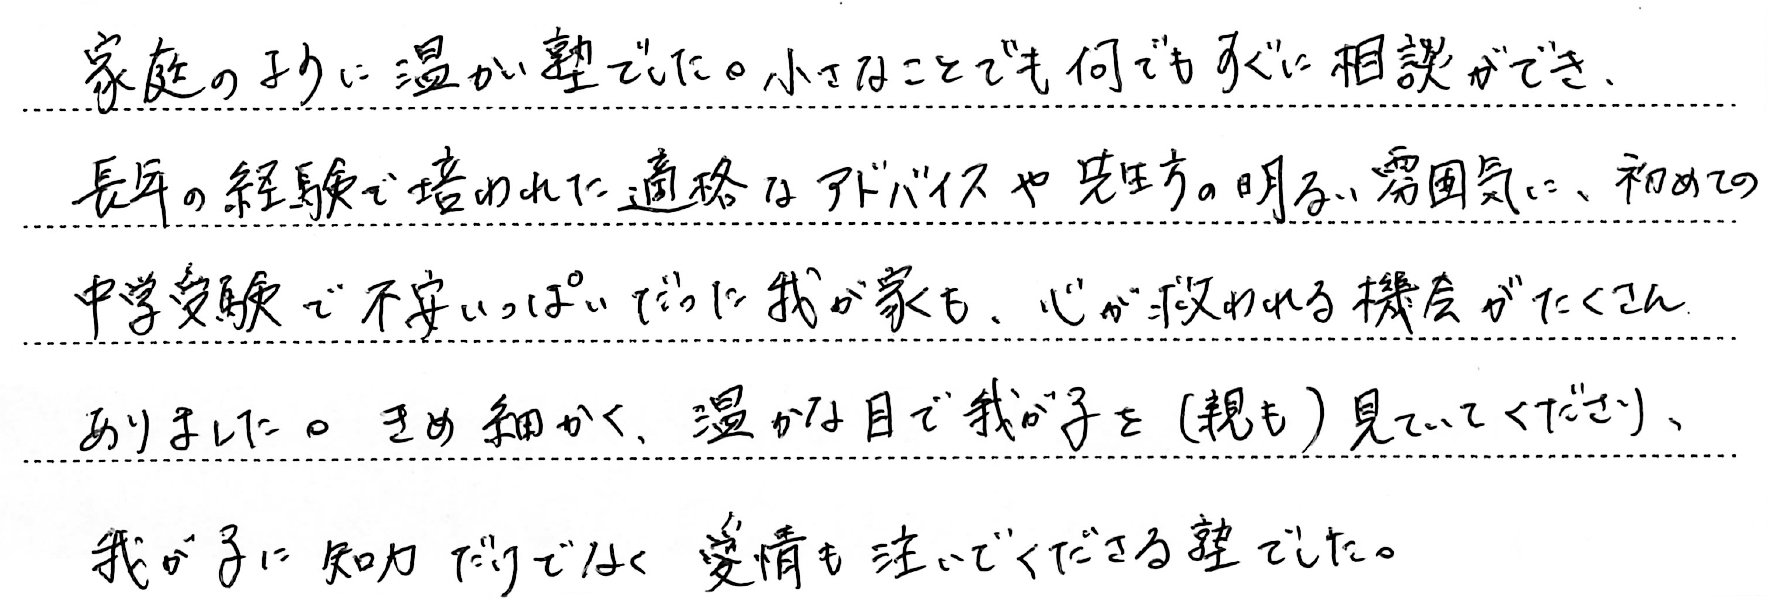 家庭のように温かい塾でした。小さなことでも何でもすぐに相談ができ、
長年の経験で培われた適格なアドバイスや先生方の明るい雰囲気に、初めての
中学受験で不安いっぱいだった我が家も、心が救われる機会がたくさん
ありました。きめ細かく、温かな目で我が子を(親も)見ていてくださり、
我が子に知力だけでなく愛情も注いでくださる塾でした。